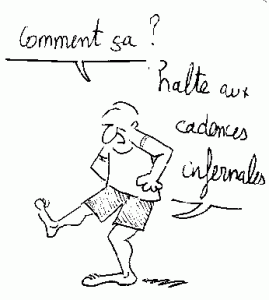 Comment ça ?
halte aux
cadences
infernales